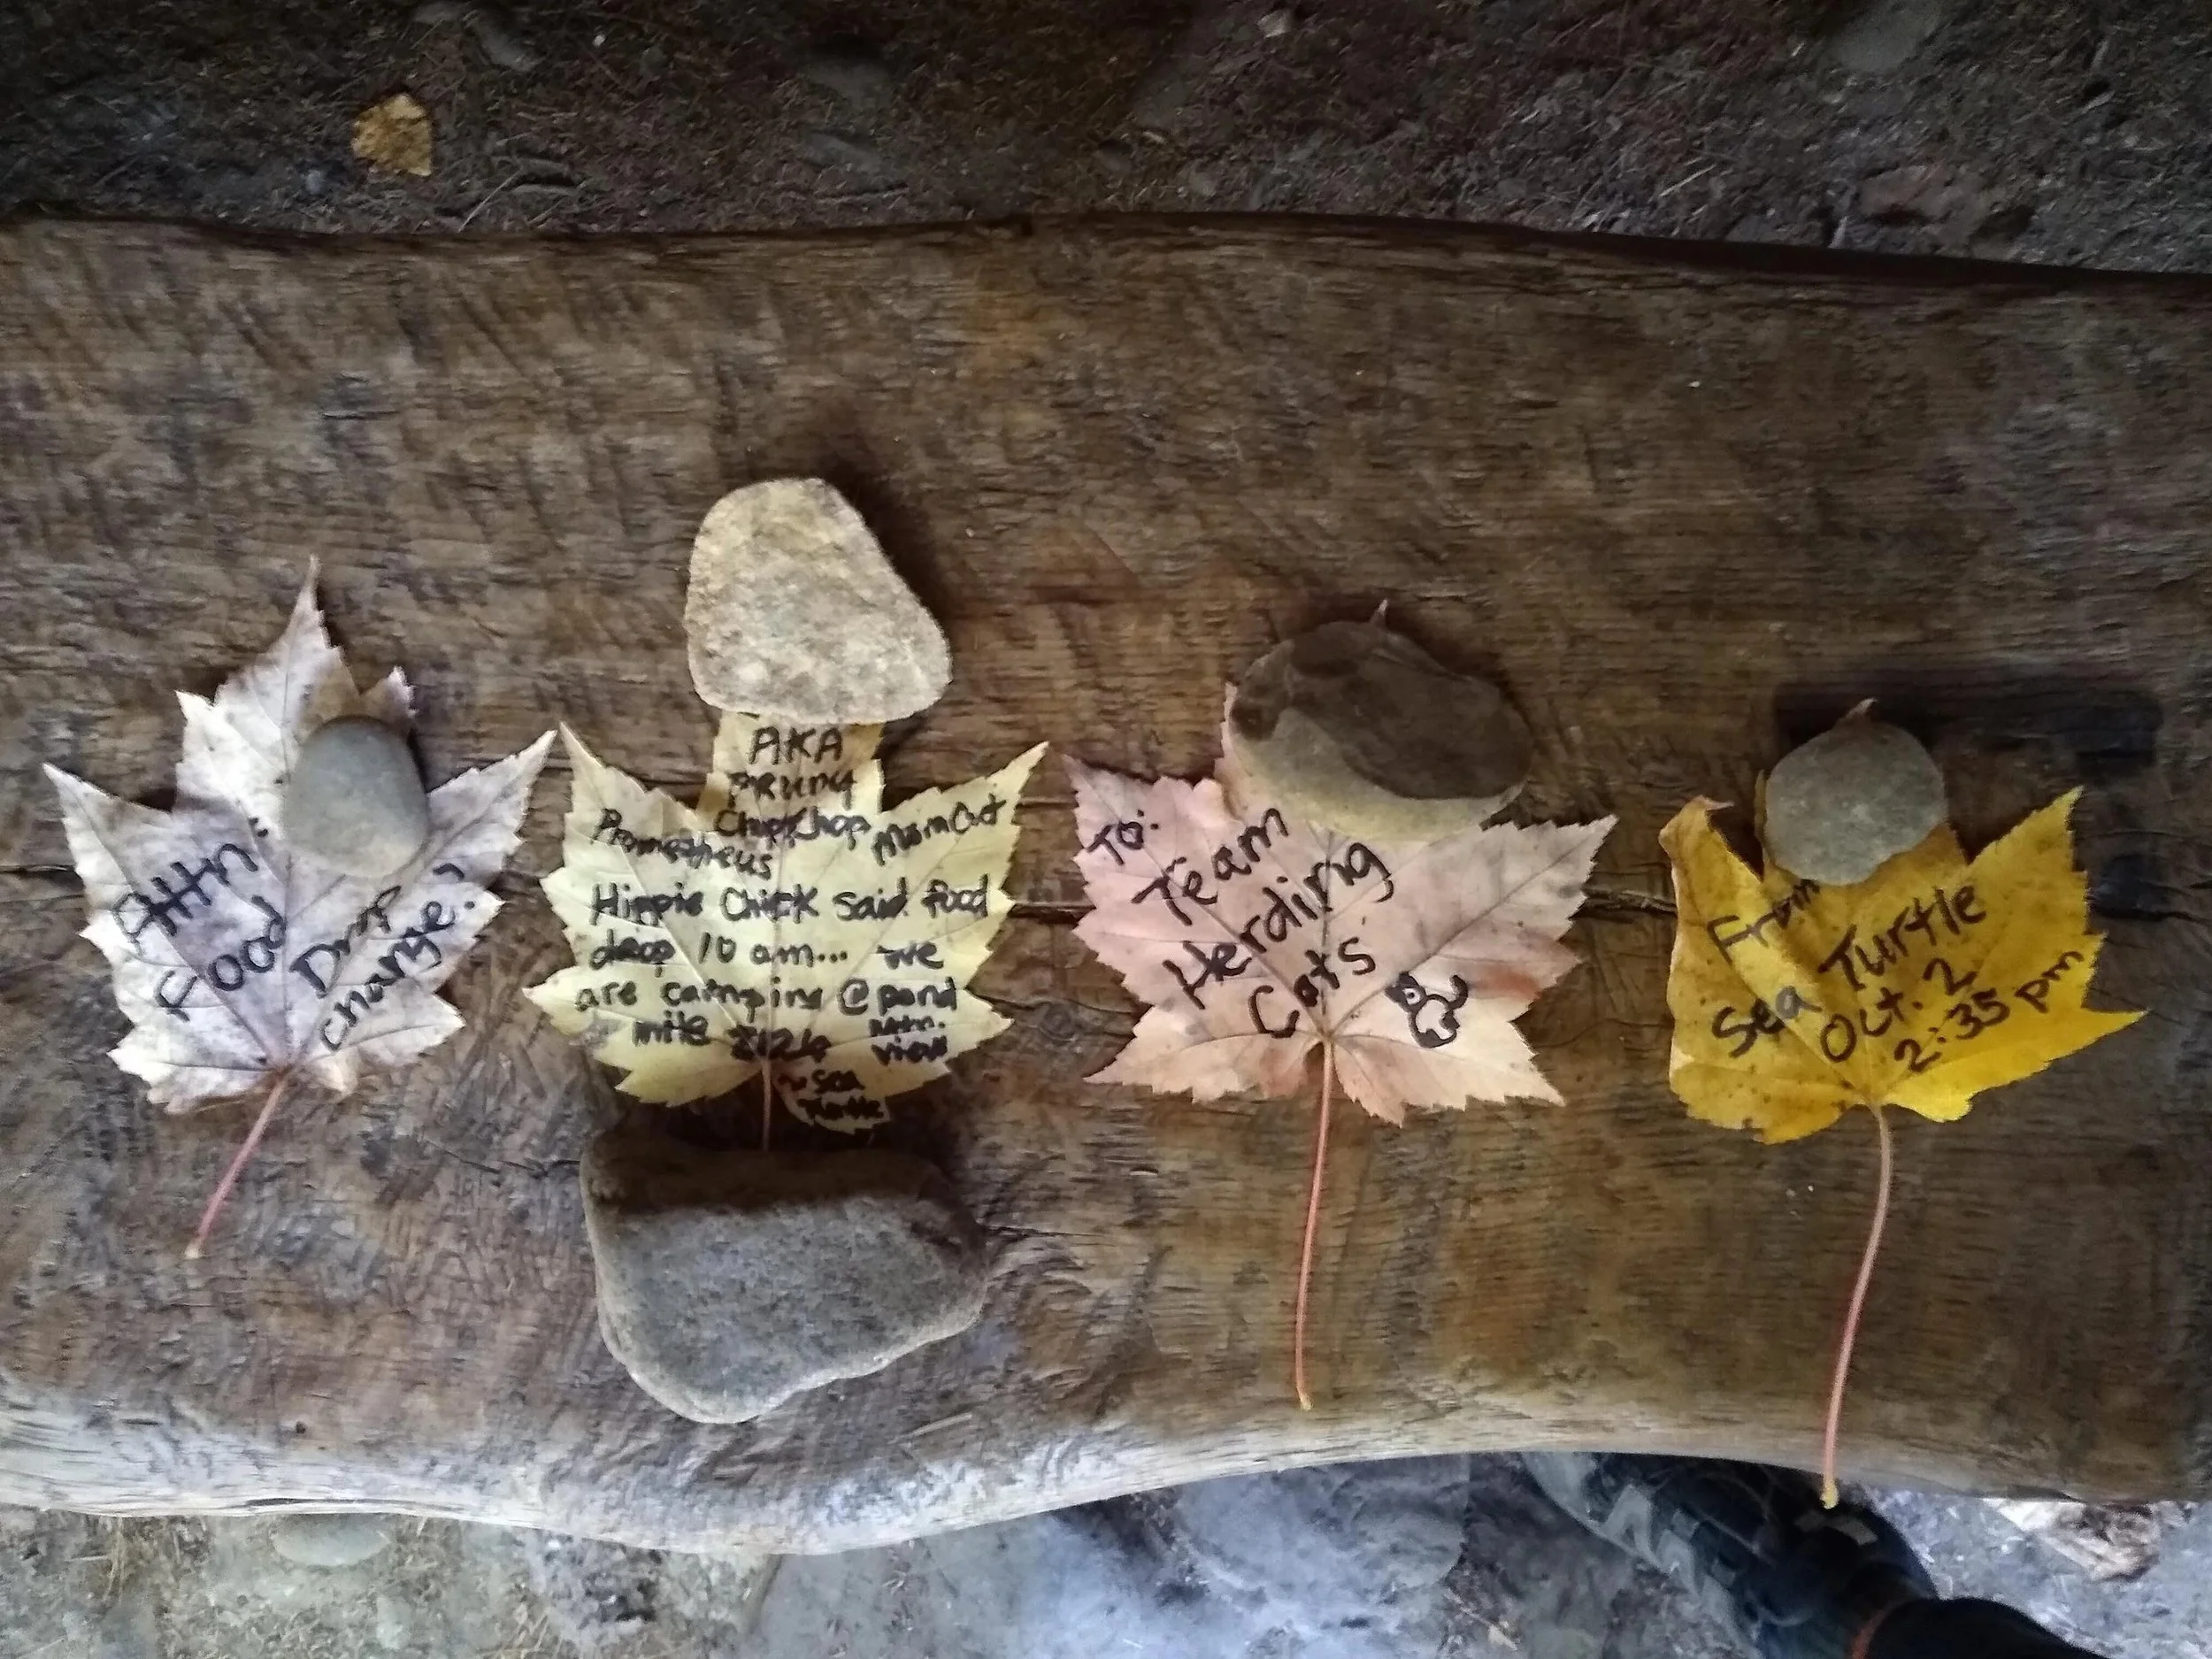 Attn:
Food
Drop
change!
AKA
Prometheus Chop Chop Mom Cat
Hippie Chick said food
drop 10 am... we
are camping @ pond
mile Mtn.
view
~Sea
Turtle
To:
Team
Herding
Cats
From
Sea Turtle
Oct. 2
2:35 pm